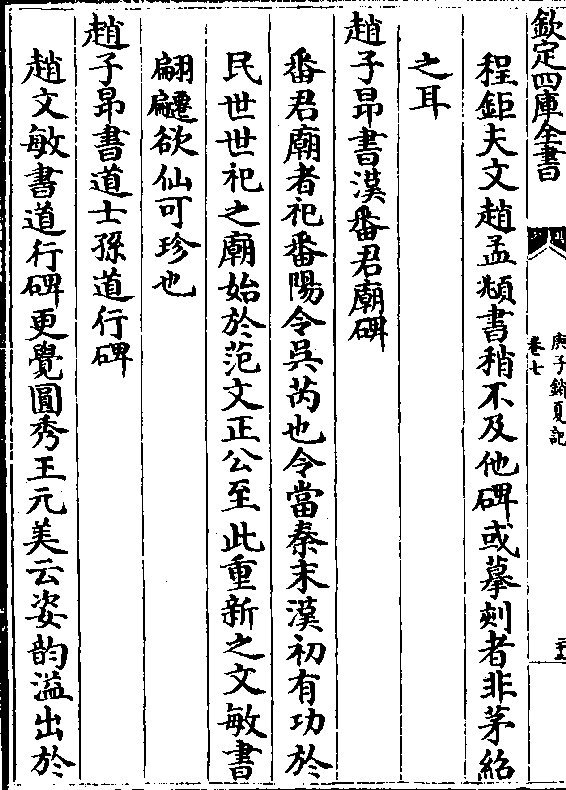 欽定四庫全書
庚子銷夏記
卷七
程鉅夫文趙孟頫書稍不及他碑或摹刻者非茅紹
之耳
趙子昂書漢番君廟碑
番君廟者祀番陽令吳芮也令當秦末漢初有功於
民世世祀之廟始於范文正公至此重新之文敏書
翩翩欲仙可珍也
趙子昂書道士孫道行碑
趙文敏書道行碑更覺圓秀王元美云姿韵溢出於